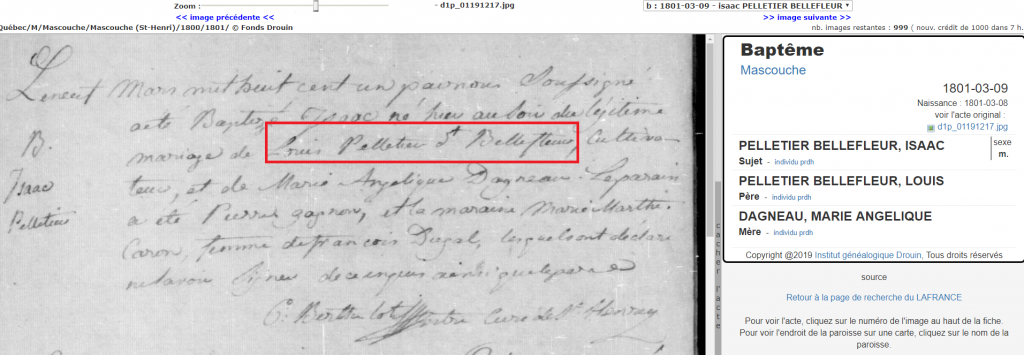 Zoom :
- d1p_01191217.jpg
b : 1801-03-09 - isaac PELLETIER BELLEFLEUR
<< image précédente <<
>> image suivante >>
Québec/M/Mascouche/Mascouche (St-Henri)/1800/1801/ © Fonds Drouin
nb. images restantes : 999 ( nouv. crédit de 1000 dans 7 h.
Le neuf Mars mil huit cent un par nous Soussigné
B.
Isaac
Pelletier
a été Baptizé Isaac né hier au soir du légitime
mariage de Louis Pelletier dt Bellefleur Cultiva-
teur, et de Marie Angelique Dagneau. Le parain
a été Pierre gagnon, et la maraine Marie Marthe
Caron, femme de francois Dugal, lesquels ont declaré
ne savoir signer de ce requis ainsi que le pere
C. Berthelot Ptre Curé de St Henry
cacher l'acte
Baptême
Mascouche
1801-03-09
Naissance : 1801-03-08
voir l'acte original :
d1p_01191217.jpg
PELLETIER BELLEFLEUR, ISAAC
sexe
m.
Sujet - individu prdh
PELLETIER BELLEFLEUR, LOUIS
Père - individu prdh
DAGNEAU, MARIE ANGELIQUE
Mère - individu prdh
Copyright @2019 Institut généalogique Drouin, Tous droits réservés
source
Retour à la page de recherche du LAFRANCE
Pour voir l'acte, cliquez sur le numéro de l'image au haut de la fiche.
Pour voir l'endroit de la paroisse sur une carte, cliquez sur le nom de la
paroisse.